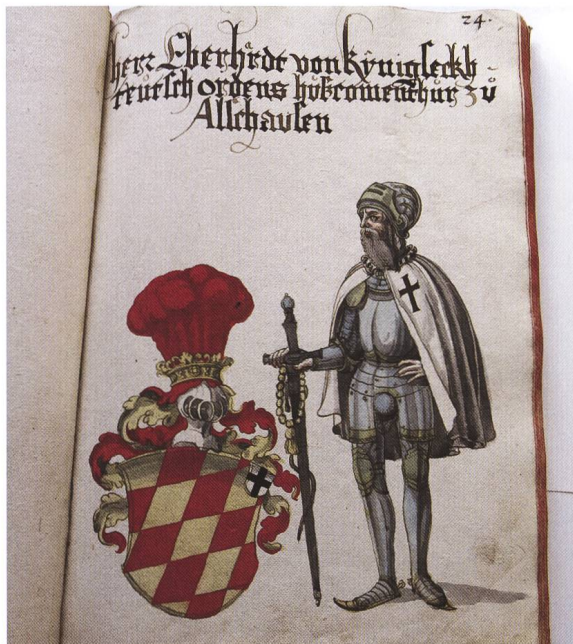 24.
herr Eberhrdt von Kÿnigseckh
teutsch ordens huscomenthur zů
Allschausen